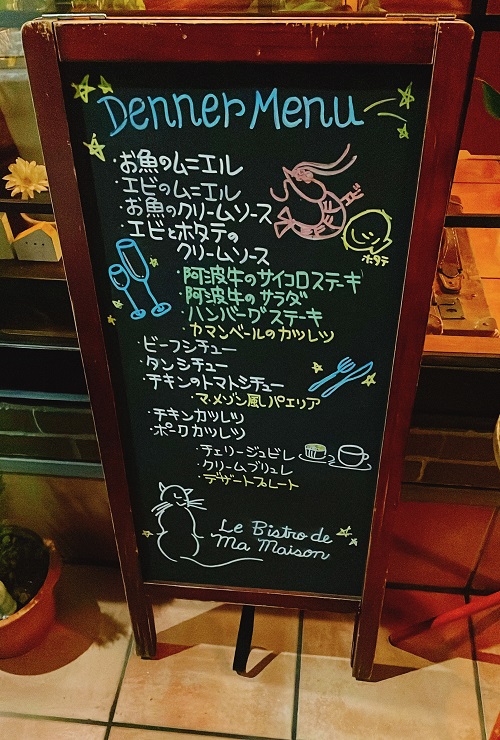 Denner Menu
・お魚のムニエル
・エビのムニエル
・お魚のクリームソース
・エビとホタテの
クリームソース
エビ
ホタテ
・阿波牛のサイコロステーキ
・阿波牛のサラダ
・ハンバーグステーキ
・カマンベールのカツレツ
・ビーフシチュー
・タンシチュー
・チキンのトマトシチュー
・マ・メゾン風パエリア
・チキンカツレツ
・ポークカツレツ
・チェリージュビレ
・クリームブリュレ
・デザートプレート
Le Bistro de
Ma Maison